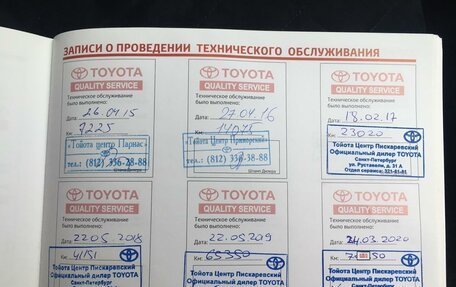 ЗАПИСИ О ПРОВЕДЕНИИ ТЕХНИЧЕСКОГО ОБСЛУЖИВАНИЯ
TOYOTA
QUALITY SERVICE
Техническое обслуживание
было выполнено:
Дата: 26.04.15
Км: 7225
«Тойота центр Парнас»
тел.: (812) 336-28-88
Штамп Дилера
TOYOTA
QUALITY SERVICE
Техническое обслуживание
было выполнено:
Дата: 27.04.16
Км:
«Тойота Центр Приморский»
тел.: (812) 336-38-88
Штамп Дилера
TOYOTA
QUALITY SERVICE
Техническое обслуживание
было выполнено:
Дата: 18.02.17
Км: 23020
Тойота Центр Пискаревский
Официальный дилер TOYOTA
Санкт-Петербург
ул. Руставели, д. 31 А
Отдел сервиса: 321-61-61
TOYOTA
QUALITY SERVICE
Техническое обслуживание
было выполнено:
Дата: 22.05.2018
Км: 41151
Тойота Центр Пискаревский
Официальный дилер TOYOTA
Санкт-Петербург
TOYOTA
QUALITY SERVICE
Техническое обслуживание
было выполнено:
Дата: 22.05.2019
Км: 65350
Тойота Центр Пискаревский
Официальный дилер TOYOTA
Санкт-Петербург
TOYOTA
QUALITY SERVICE
Техническое обслуживание
было выполнено:
Дата: 24.03.2020
Км:
Тойота Центр Пискаревский
Официальный дилер TOYOTA
Санкт-Петербург